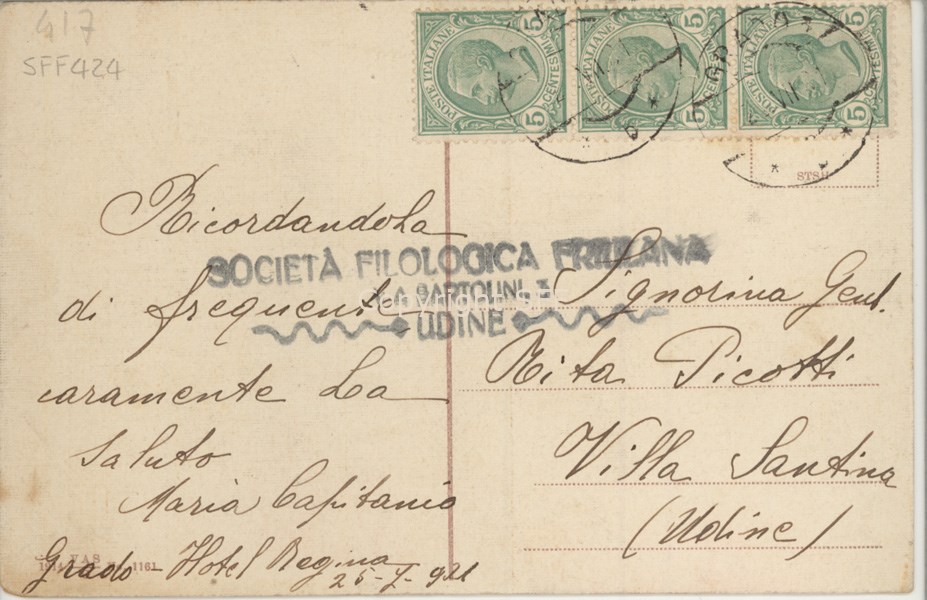 417
SFF424
POSTE ITALIANE
CENTESIMI
5
5
POSTE ITALIANE
CENTESIMI
5
5
POSTE ITALIANE
CENTESIMI
5
5
GRADO
STSM
Ricordandola
di frequente
caramente La
saluto
Maria Capitanio
Grado - Hotel Regina
SOCIETÀ FILOLOGICA FRIULANA
VIA BARTOLINI 3
UDINE
Signorina Gent.
Rita Picotti
Villa Santina
(Udine)
1161